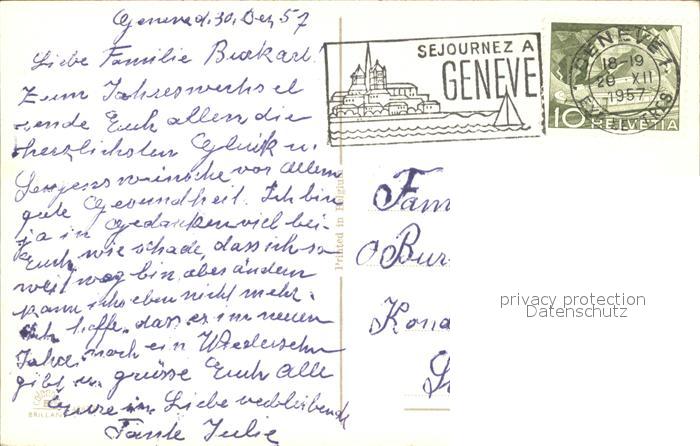 Geneve d. 30. Dez 57
Liebe Familie Burkart!
Zum Jahreswechsel
sende Euch allen die
herzlichsten Glück u.
Segenswünsche vor allem
gute Gesundheit. Ich bin
ja in Gedanken viel bei
Euch, wie schade, dass ich so
weit weg bin, aber ändern
kann ich eben nicht mehr.
Ich hoffe, dass es im neuen
Jahre noch ein Wiedersehn
gibt u. grüsse Euch alle
Eure in Liebe verbleibende
Tante Julie
Printed in Belgium
SEJOURNEZ A
GENEVE
GENEVE 1
18-19
XII
1957
10 HELVETIA
Fam
Bur
Kon
privacy protection
Datenschutz